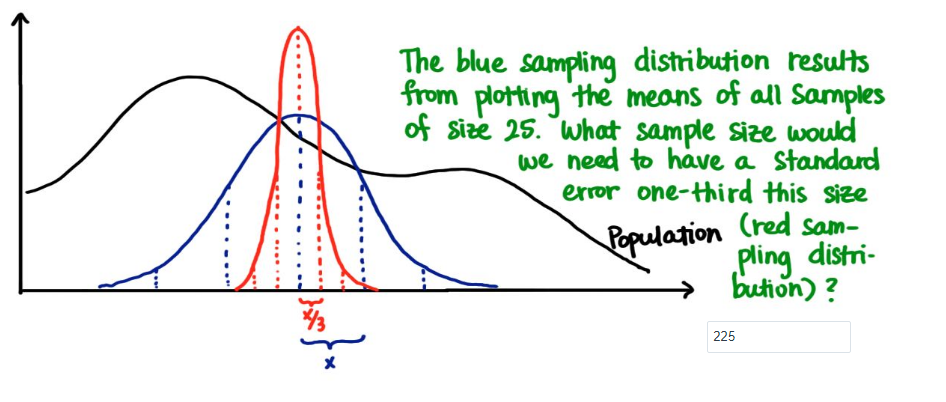 The blue sampling distribution results
from plotting the means of all samples
of size 25. What sample size would
we need to have a standard
error one-third this size
Population (red sam-
pling distri-
bution)?
x/3
225
x